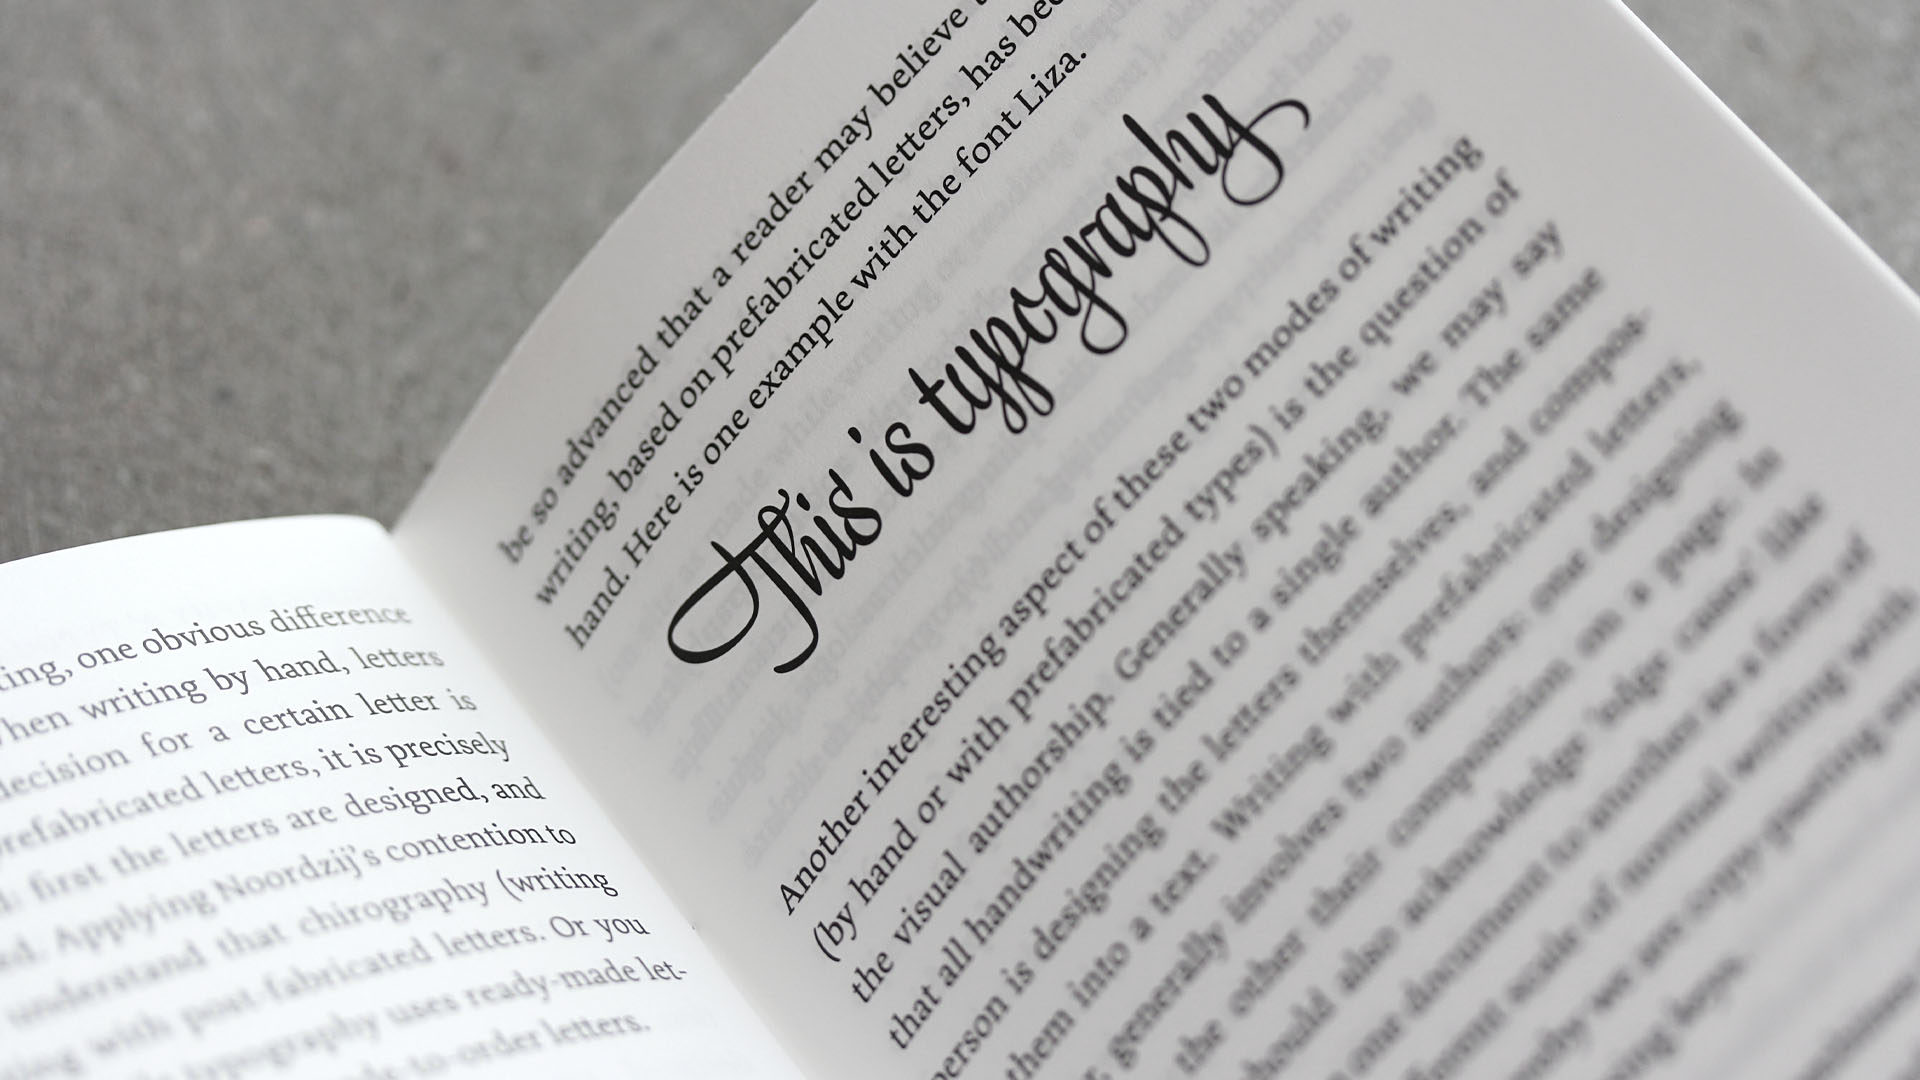 ting, one obvious difference
When writing by hand, letters
decision for a certain letter is
prefabricated letters, it is precisely
first the letters are designed, and
Applying Noordzij's contention to
understand that chirography (writing
with post-fabricated letters. Or you
typography uses ready-made let-
to-order letters.
be so advanced that a reader may believe
writing, based on prefabricated letters, has bee
hand. Here is one example with the font Liza.
This is typography
Another interesting aspect of these two modes of writing
(by hand or with prefabricated types) is the question of
the visual authorship. Generally speaking, we may say
that all handwriting is tied to a single author. The same
person is designing the letters themselves, and compos-
them into a text. Writing with prefabricated letters,
generally involves two authors: one designing
the other their composition on a page. In
should also acknowledge 'edge cases' like
one document to another as a form of
scale of normal writing with
we are copy-pasting